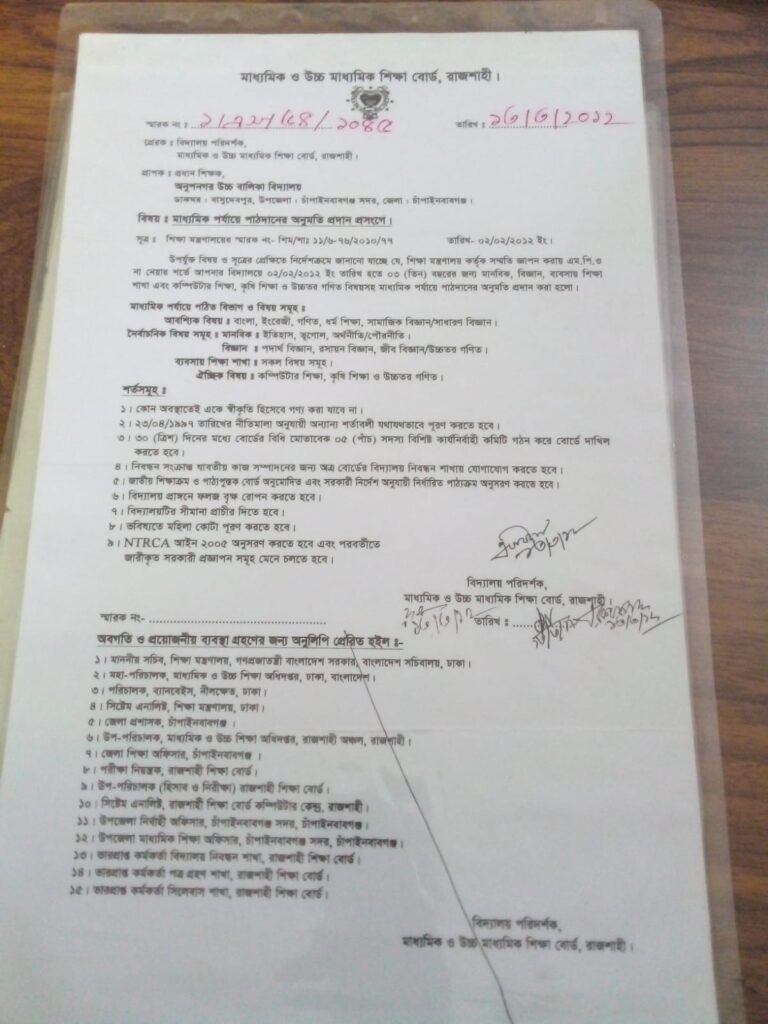 মাধ্যমিক ও উচ্চ মাধ্যমিক শিক্ষা বোর্ড, রাজশাহী।
স্মারক নং ঃ ১/এস/৫৪/১০৪৫ তারিখ ঃ ১৩/৩/২০১২
প্রেরক ঃ বিদ্যালয় পরিদর্শক,
মাধ্যমিক ও উচ্চ মাধ্যমিক শিক্ষা বোর্ড, রাজশাহী।
প্রাপক ঃ প্রধান শিক্ষক,
অনুপনগর উচ্চ বালিকা বিদ্যালয়
ডাকঘর : বাসুদেবপুর, উপজেলা : চাঁপাইনবাবগঞ্জ সদর, জেলা : চাঁপাইনবাবগঞ্জ।
বিষয় ঃ মাধ্যমিক পর্যায়ে পাঠদানের অনুমতি প্রদান প্রসংগে।
সূত্র ঃ শিক্ষা মন্ত্রণালয়ের স্মারক নং- শিম/শাঃ ১১/৬-৭৬/২০১০/৭৭ তারিখ- ০২/০২/২০১২ ইং।
উপর্যুক্ত বিষয় ও সূত্রের প্রেক্ষিতে নির্দেশক্রমে জানানো যাচ্ছে যে, শিক্ষা মন্ত্রণালয় কর্তৃক সম্মতি জ্ঞাপন করায় এম.পি.ও
না নেয়ার শর্তে আপনার বিদ্যালয়ে ০২/০২/২০১২ ইং তারিখ হতে ০৩ (তিন) বছরের জন্য মানবিক, বিজ্ঞান, ব্যবসায় শিক্ষা
শাখা এবং কম্পিউটার শিক্ষা, কৃষি শিক্ষা ও উচ্চতর গণিত বিষয়সহ মাধ্যমিক পর্যায়ে পাঠদানের অনুমতি প্রদান করা হলো।
মাধ্যমিক পর্যায়ে পঠিত বিভাগ ও বিষয় সমূহ ঃ
আবশ্যিক বিষয় ঃ বাংলা, ইংরেজী, গণিত, ধর্ম শিক্ষা, সামাজিক বিজ্ঞান/সাধারণ বিজ্ঞান।
নৈর্বাচনিক বিষয় সমূহ ঃ মানবিক ঃ ইতিহাস, ভূগোল, অর্থনীতি/পৌরনীতি।
বিজ্ঞান ঃ পদার্থ বিজ্ঞান, রসায়ন বিজ্ঞান, জীব বিজ্ঞান/উচ্চতর গণিত।
ব্যবসায় শিক্ষা শাখা ঃ সকল বিষয় সমূহ।
ঐচ্ছিক বিষয় ঃ কম্পিউটার শিক্ষা, কৃষি শিক্ষা ও উচ্চতর গণিত।
শর্তসমূহ ঃ
১। কোন অবস্থাতেই একে স্বীকৃতি হিসেবে গণ্য করা যাবে না।
২। ২৩/০৪/১৯৯৭ তারিখের নীতিমালা অনুযায়ী অন্যান্য শর্তাবলী যথাযথভাবে পূরণ করতে হবে।
৩। ৩০ (ত্রিশ) দিনের মধ্যে বোর্ডের বিধি মোতাবেক ০৫ (পাঁচ) সদস্য বিশিষ্ট কার্যনির্বাহী কমিটি গঠন করে বোর্ডে দাখিল
করতে হবে।
৪। নিবন্ধন সংক্রান্ত যাবতীয় কাজ সম্পাদনের জন্য অত্র বোর্ডের বিদ্যালয় নিবন্ধন শাখায় যোগাযোগ করতে হবে।
৫। জাতীয় শিক্ষাক্রম ও পাঠ্যপুস্তক বোর্ড অনুমোদিত এবং সরকারী নির্দেশ অনুযায়ী নির্ধারিত পাঠ্যক্রম অনুসরণ করতে হবে।
৬। বিদ্যালয় প্রাঙ্গনে ফলজ বৃক্ষ রোপন করতে হবে।
৭। বিদ্যালয়টির সীমানা প্রাচীর দিতে হবে।
৮। ভবিষ্যতে মহিলা কোটা পূরণ করতে হবে।
৯। NTRCA আইন ২০০৫ অনুসরণ করতে হবে এবং পরবর্তীতে
জারীকৃত সরকারী প্রজ্ঞাপন সমূহ মেনে চলতে হবে।
বিদ্যালয় পরিদর্শক,
মাধ্যমিক ও উচ্চ মাধ্যমিক শিক্ষা বোর্ড, রাজশাহী।
স্মারক নং- তারিখ ঃ
অবগতি ও প্রয়োজনীয় ব্যবস্থা গ্রহণের জন্য অনুলিপি প্রেরিত হইল ঃ-
১। মাননীয় সচিব, শিক্ষা মন্ত্রণালয়, গণপ্রজাতন্ত্রী বাংলাদেশ সরকার, বাংলাদেশ সচিবালয়, ঢাকা।
২। মহা-পরিচালক, মাধ্যমিক ও উচ্চ শিক্ষা অধিদপ্তর, ঢাকা, বাংলাদেশ।
৩। পরিচালক, ব্যানবেইস, নীলক্ষেত, ঢাকা।
৪। সিষ্টেম এনালিষ্ট, শিক্ষা মন্ত্রণালয়, ঢাকা।
৫। জেলা প্রশাসক, চাঁপাইনবাবগঞ্জ।
৬। উপ-পরিচালক, মাধ্যমিক ও উচ্চ শিক্ষা অধিদপ্তর, রাজশাহী অঞ্চল, রাজশাহী।
৭। জেলা শিক্ষা অফিসার, চাঁপাইনবাবগঞ্জ।
৮। পরীক্ষা নিয়ন্ত্রক, রাজশাহী শিক্ষা বোর্ড।
৯। উপ-পরিচালক (হিসাব ও নিরীক্ষা) রাজশাহী শিক্ষা বোর্ড।
১০। সিষ্টেম এনালিষ্ট, রাজশাহী শিক্ষা বোর্ড কম্পিউটার কেন্দ্র, রাজশাহী।
১১। উপজেলা নির্বাহী অফিসার, চাঁপাইনবাবগঞ্জ সদর, চাঁপাইনবাবগঞ্জ।
১২। উপজেলা মাধ্যমিক শিক্ষা অফিসার, চাঁপাইনবাবগঞ্জ সদর, চাঁপাইনবাবগঞ্জ।
১৩। ভারপ্রাপ্ত কর্মকর্তা বিদ্যালয় নিবন্ধন শাখা, রাজশাহী শিক্ষা বোর্ড।
১৪। ভারপ্রাপ্ত কর্মকর্তা পত্র গ্রহণ শাখা, রাজশাহী শিক্ষা বোর্ড।
১৫। ভারপ্রাপ্ত কর্মকর্তা সিলেবাস শাখা, রাজশাহী শিক্ষা বোর্ড।
বিদ্যালয় পরিদর্শক,
মাধ্যমিক ও উচ্চ মাধ্যমিক শিক্ষা বোর্ড, রাজশাহী।